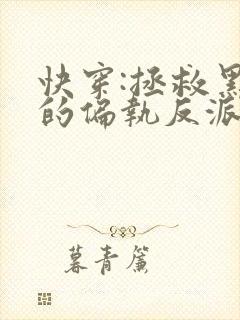 快穿:拯救黑
的偏執反派
暮青簾